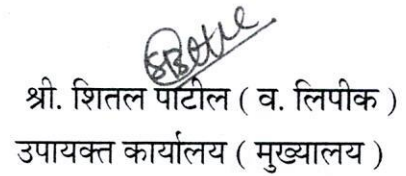 श्री. शितल पाटील ( व. लिपीक )
उपायक्त कार्यालय ( मुख्यालय )